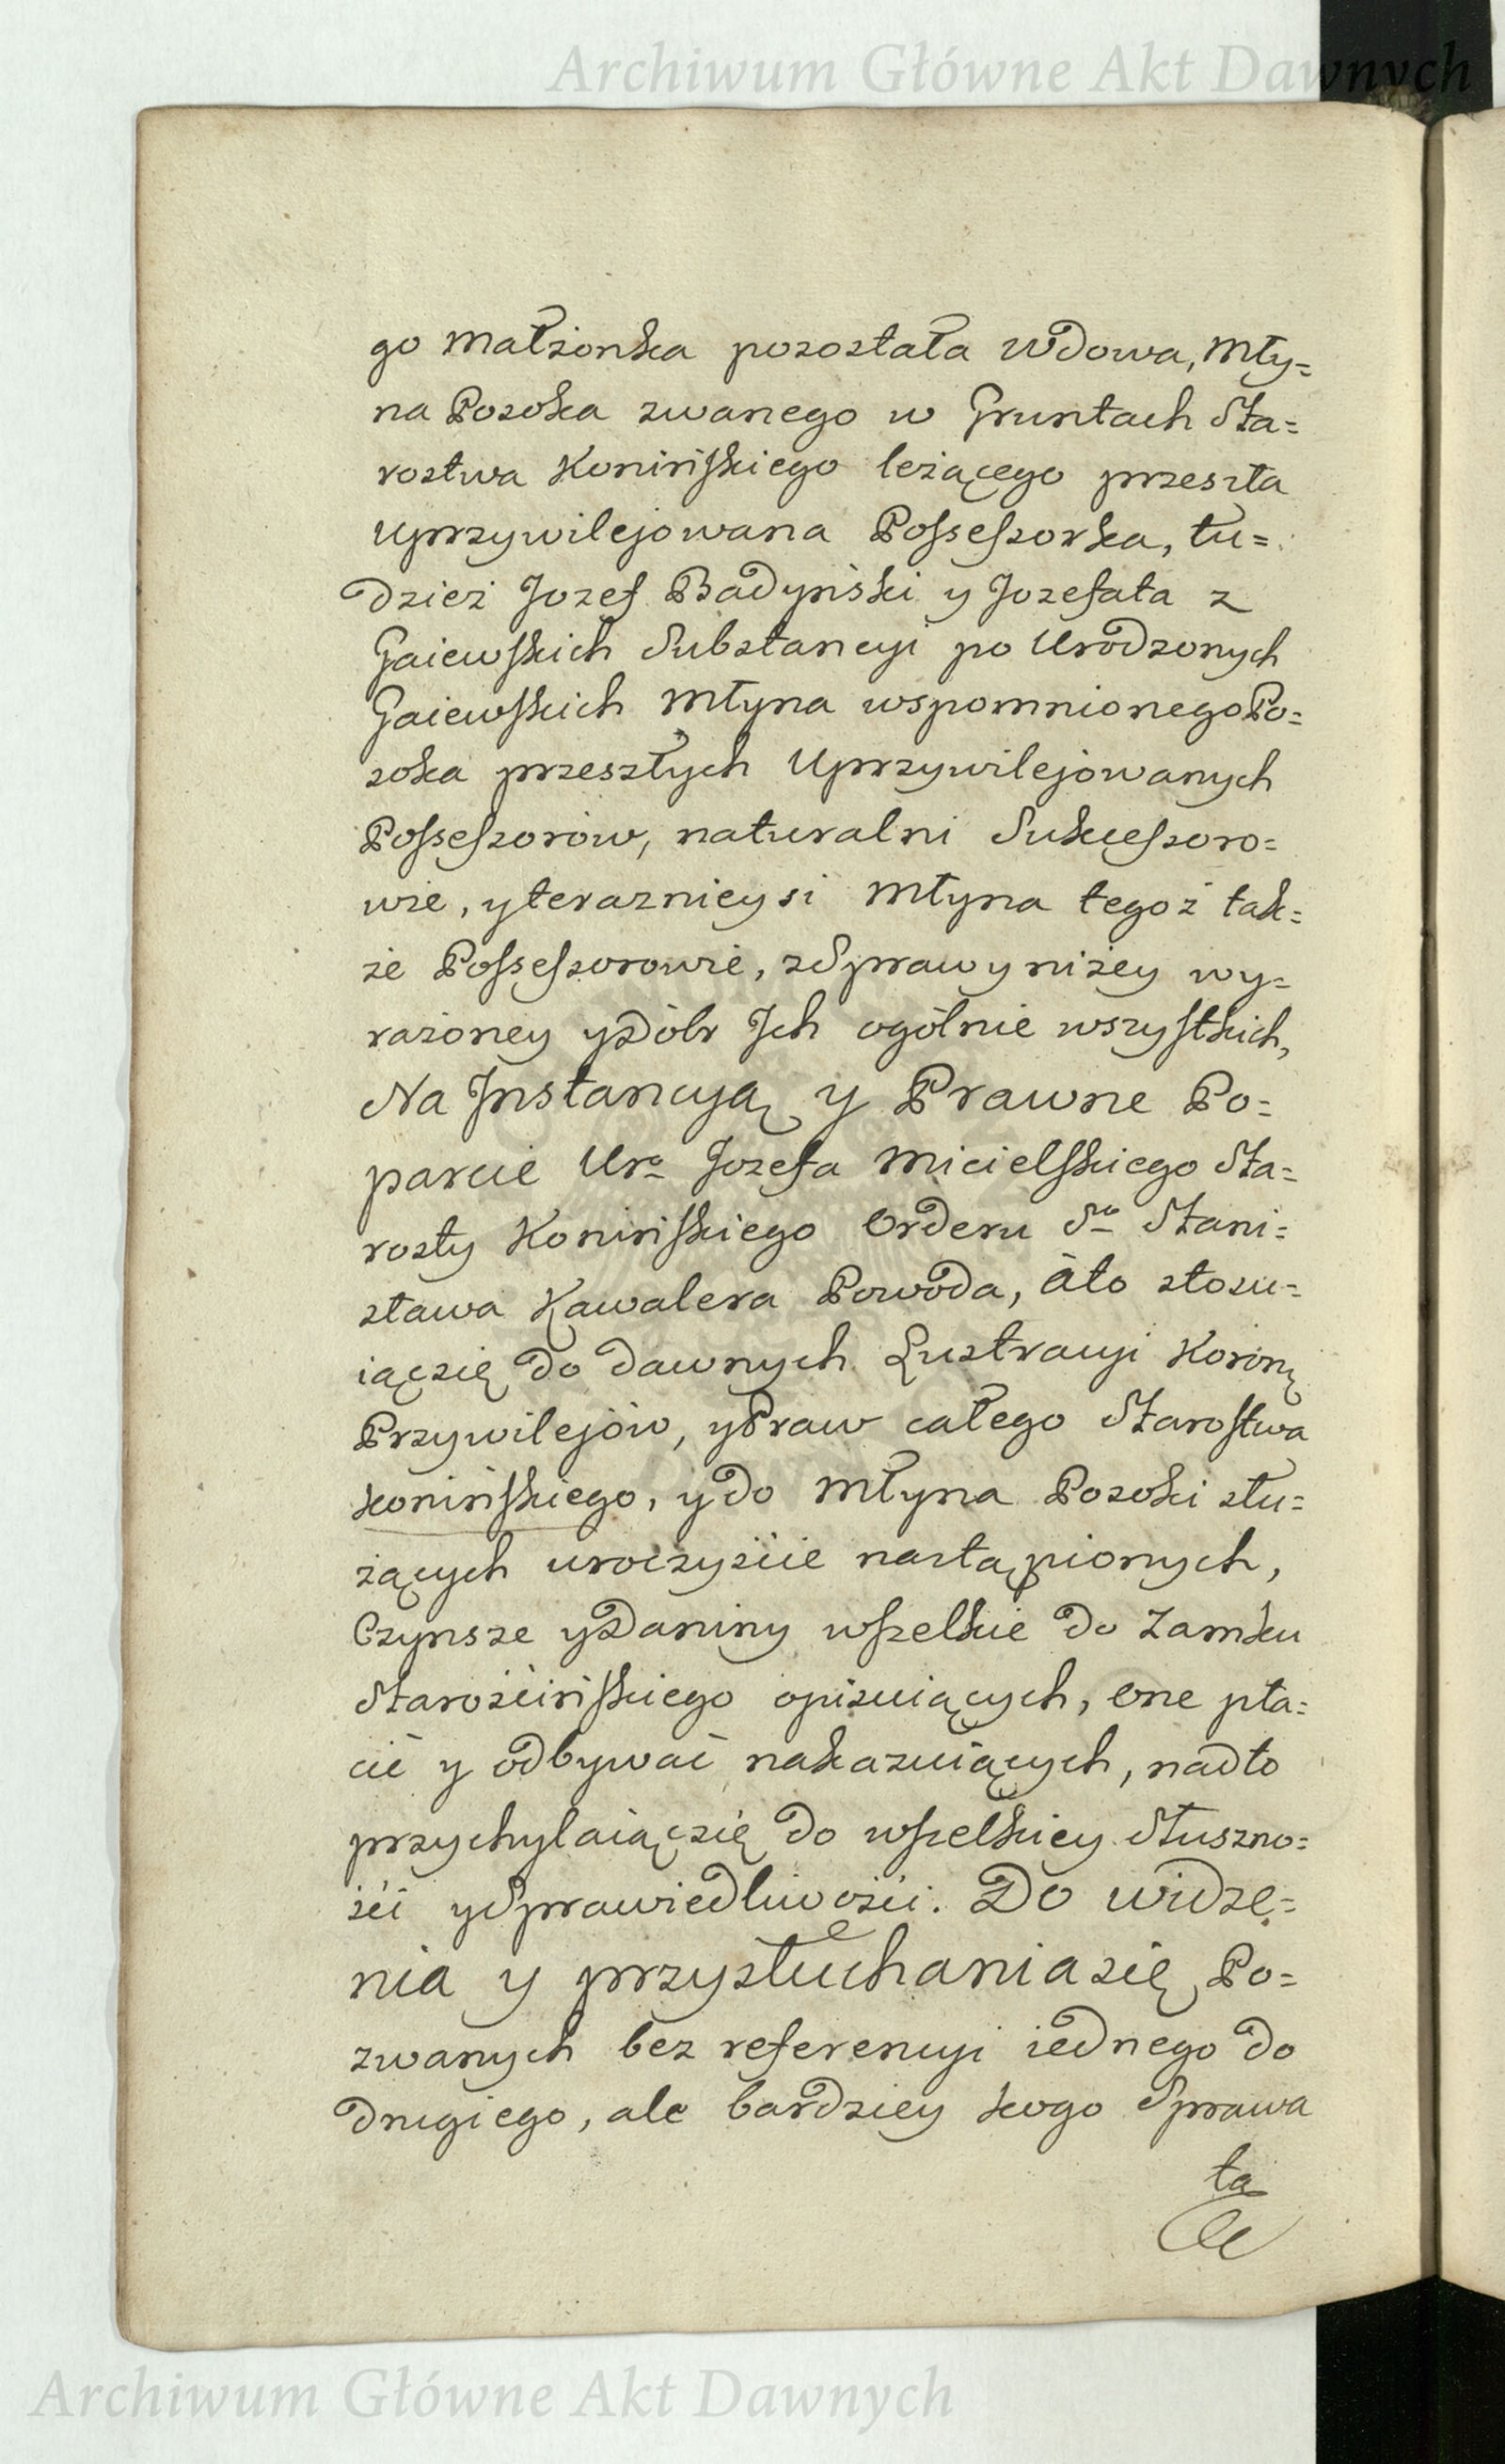 Archiwum Główne Akt Dawnych
go Małżonka pozostała Wdowa, Mły=
na Posoka zwanego w Gruntach Sta=
rostwa Konińskiego leżącego przeszła
Uprzywilejowana Possessorka, tu=
dzież Jozef Badyński y Jozefata z
Gaiewskich Substancyi po Urodzonych
Gaiewskich Młyna wspomnionego Po=
soka przeszłych Uprzywilejowanych
Possessorów, naturalni Sukcessoro=
wie, y teraznieysi Młyna tegoż tak=
że Possessorowie, z Sprawy niżey wy=
rażoney y Dóbr Ich ogólnie wszystkich,
Na Instancyą y Prawne Po=
parcie Uro Jozefa Micielskiego Sta=
rosty Konińskiego Orderu Sgo Stani=
sława Kawalera Powoda, a to stosu=
iąc się do dawnych Lustracyi Koronę
Przywilejów, y Praw całego Starostwa
Konińskiego, y do Młyna Posoki słu=
żących uroczyście nastąpionych,
Czynsze y Daniny wszelkie do Zamku
Starościńskiego opisuiących, one pła=
cić y odbywać nakazuiących, nadto
przychylaiąc się do wszelkiey Słuszno=
ści y Sprawiedliwości. Do widze=
nia y przysłuchania się Po=
zwanych bez referencyi iednego do
drugiego, ale bardziey kogo Sprawa
ta
Archiwum Główne Akt Dawnych